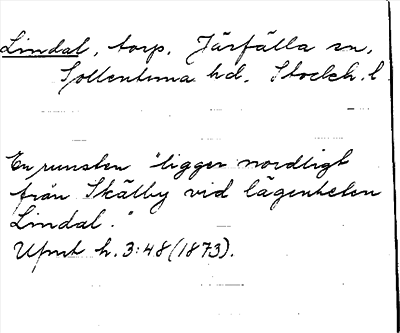 Lindal, torp. Järfälla sn,
Sollentuna hd. Stockh. l.
En runsten "ligger nordligt
från Skälby vid lägenheten
Lindal."
Ufmt h. 3:48 (1873).